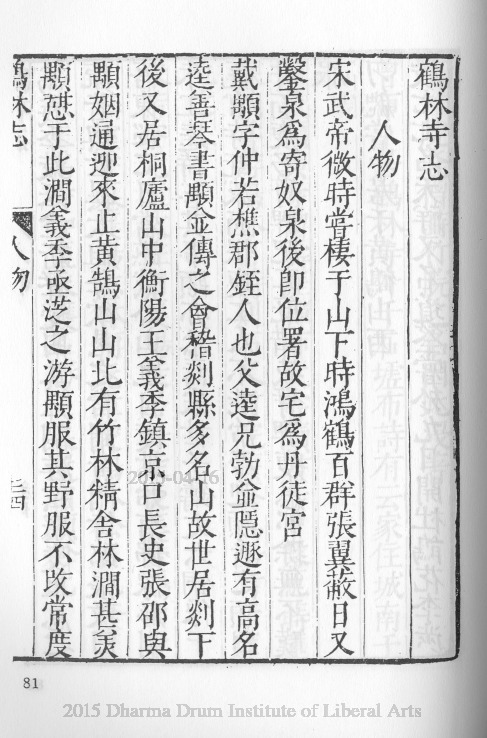 鶴林寺志
人物
宋武帝微時嘗棲于山下時鴻鶴百群張翼蔽日又
鑿泉爲寄奴泉後卽位署故宅爲丹徒宮
戴顒字仲若樵郡銍人也父逵兄勃並隱遯有高名
逵善琴書顒並傳之會稽剡縣多名山故世居剡下
後又居桐廬山中衡陽王義季鎮京口長史張邵與
顒姻通迎來止黃鵠山山北有竹林精舍林澗甚美
顒憩于此澗義季亟從之游顒服其野服不改常度
鶴林志
人物
2015-04-16
81
2015 Dharma Drum Institute of Liberal Arts